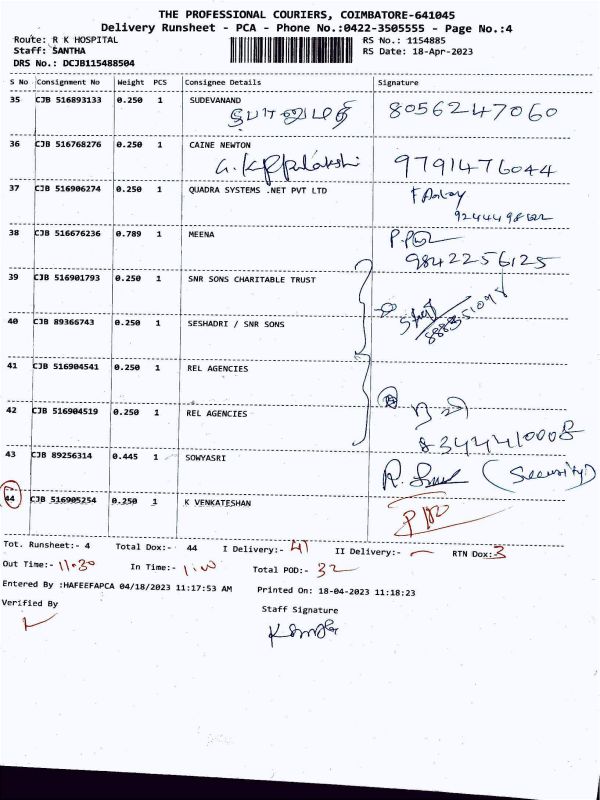 THE PROFESSIONAL COURIERS, COIMBATORE-641045
Delivery Runsheet - PCA - Phone No.:0422-3505555 - Page No.:4
Route: R K HOSPITAL RS No.: 1154885
Staff: SANTHA RS Date: 18-Apr-2023
DRS No.: DCJB115488504
S No Consignment No Weight PCS Consignee Details Signature
35 CJB 516893133 0.250 1 SUDEVANAND
8056247060
36 CJB 516768276 0.250 1 CAINE NEWTON
9791476044
37 CJB 516906274 0.250 1 QUADRA SYSTEMS .NET PVT LTD
38 CJB 516676236 0.789 1 MEENA
9842256125
39 CJB 516901793 0.250 1 SNR SONS CHARITABLE TRUST
40 CJB 89366743 0.250 1 SESHADRI / SNR SONS
41 CJB 516904541 0.250 1 REL AGENCIES
42 CJB 516904519 0.250 1 REL AGENCIES
8344410008
43 CJB 89256314 0.445 1 SOWYASRI
(Security)
44 CJB 516905254 0.250 1 K VENKATESHAN
Tot. Runsheet:- 4 Total Dox:- 44 I Delivery:- 41 II Delivery:- — RTN Dox:- 3
Out Time:- 11.30 In Time:- 1.00 Total POD:- 32
Entered By :HAFEEFAPCA 04/18/2023 11:17:53 AM Printed On: 18-04-2023 11:18:23
Verified By Staff Signature